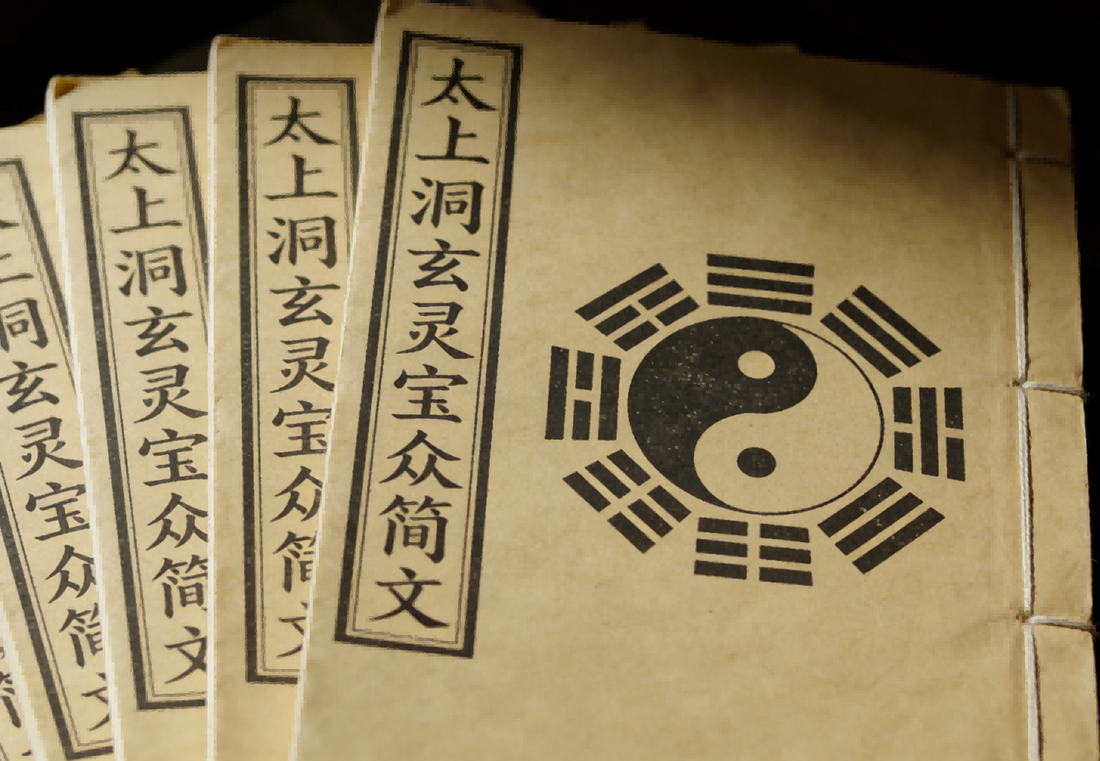 太上洞玄灵宝众简文
太上洞玄灵宝众简文
太上洞玄灵宝众简文
上洞玄灵宝众简文